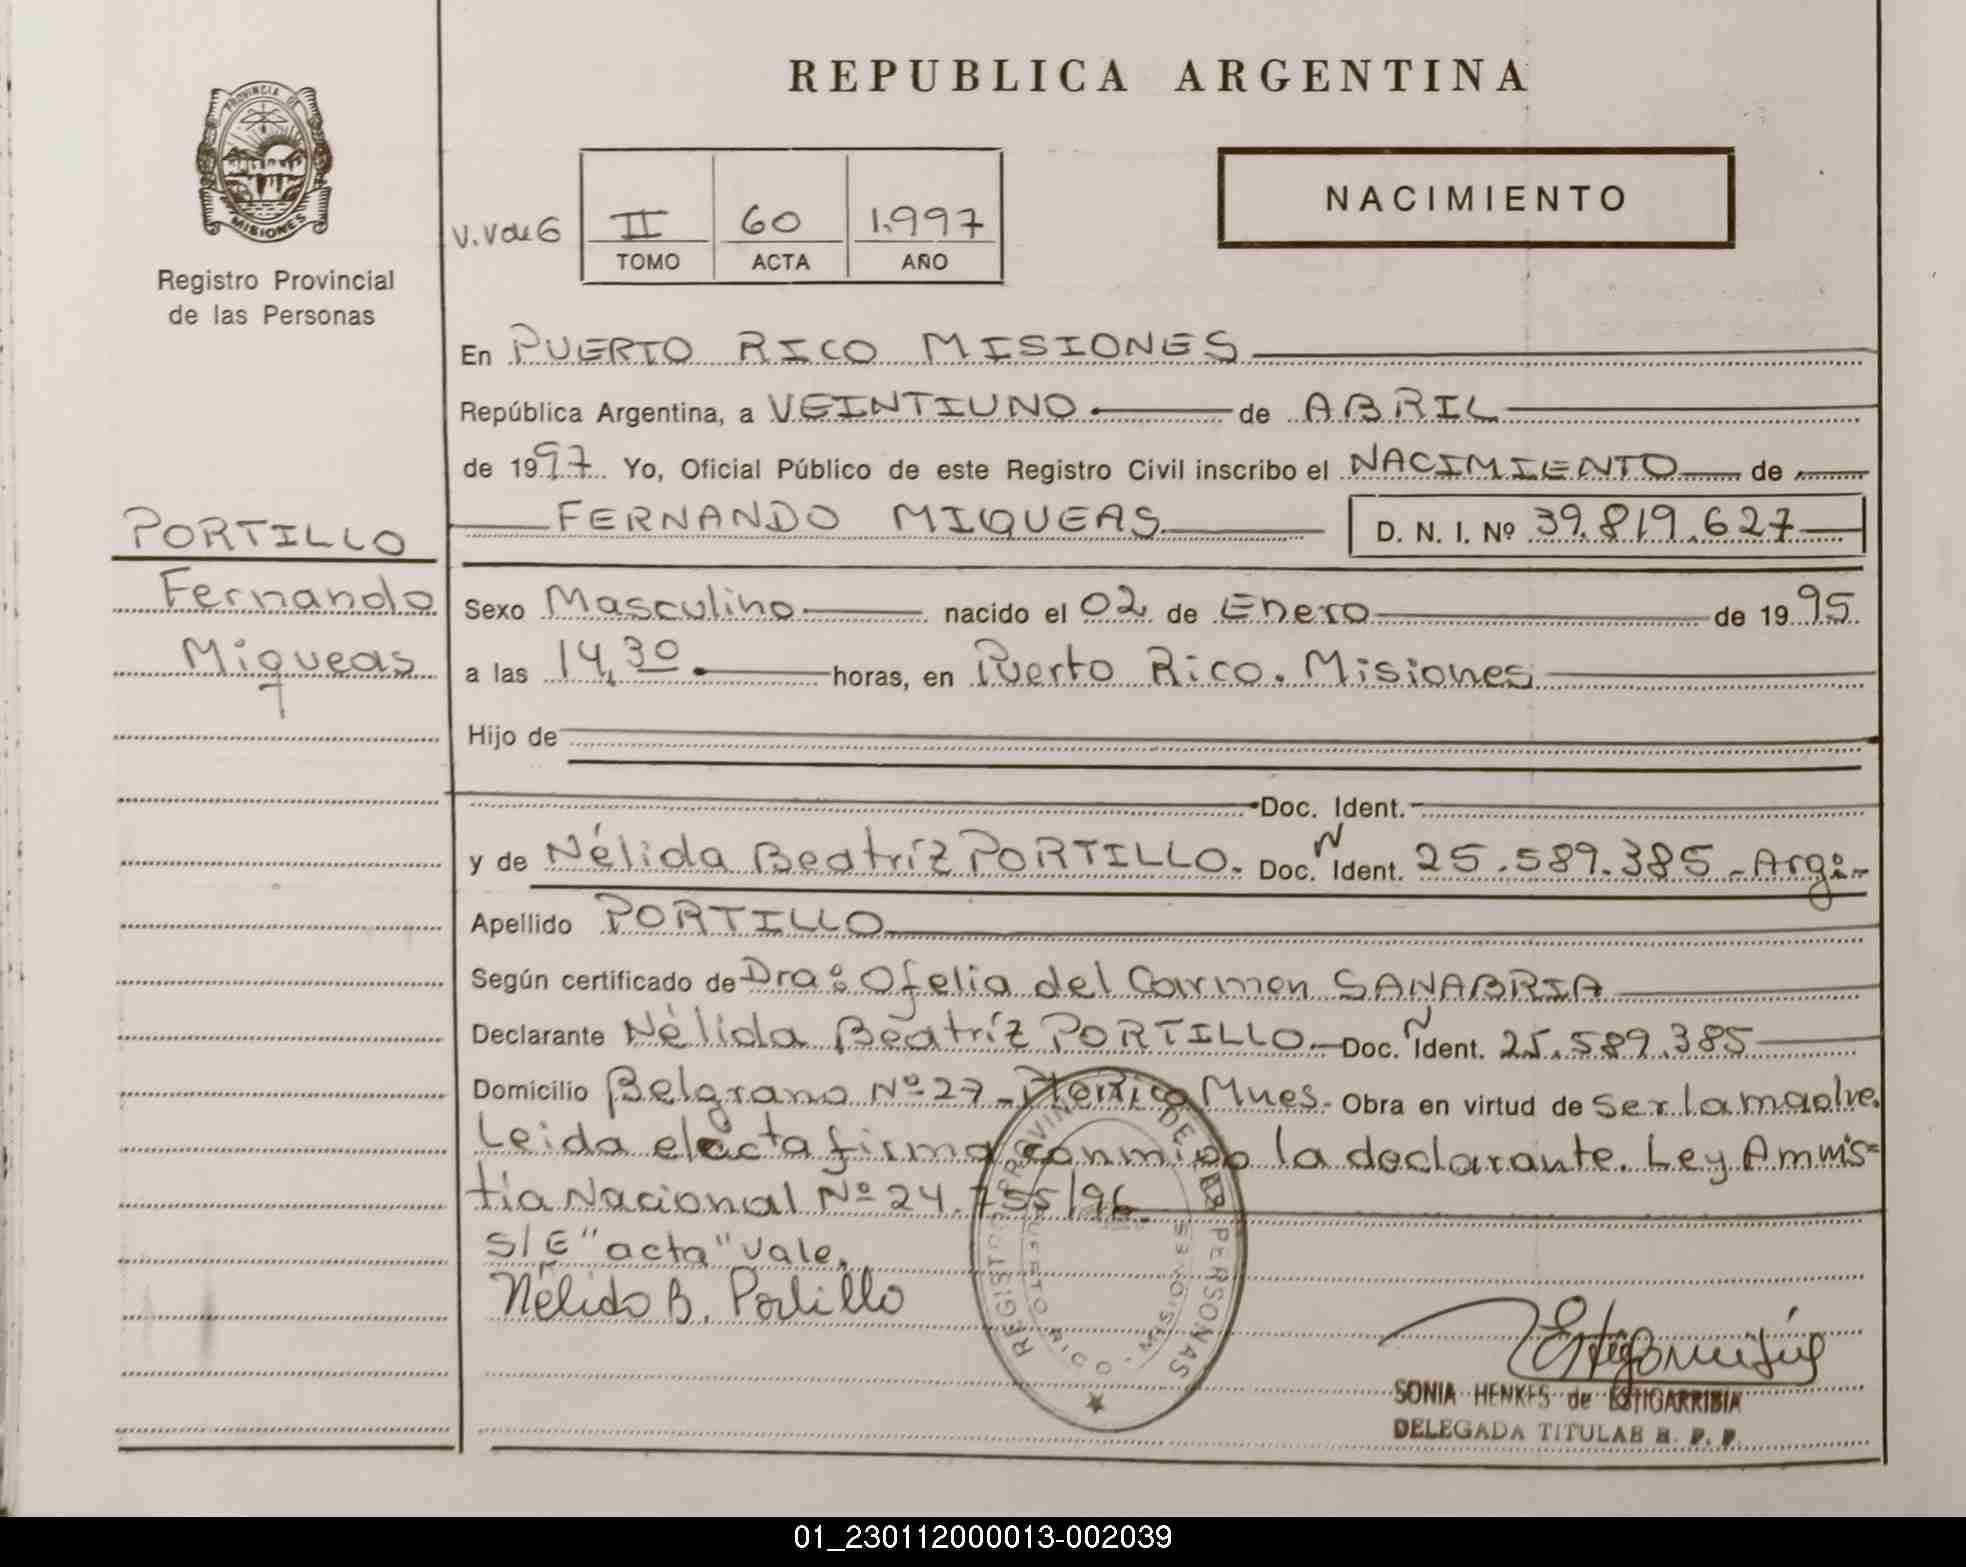 REPUBLICA ARGENTINA
PROVINCIA DE
MISIONES
Registro Provincial
de las Personas
NACIMIENTO
V.V de G
II 60 1.997
TOMO ACTA AÑO
En PUERTO RICO MISIONES
República Argentina, a VEINTIUNO de ABRIL
de 1997 Yo, Oficial Público de este Registro Civil inscribo el NACIMIENTO de
FERNANDO MIQUEAS D. N. I. Nº 39.819.627
PORTILLO
Fernando
Miqueas
Sexo Masculino nacido el 02 de Enero de 1995
a las 14,30 horas, en Puerto Rico. Misiones
Hijo de
Doc. Ident.
y de Nélida Beatríz PORTILLO. Doc. Ident. 25.589.385 - Arg:-
Apellido PORTILLO
Según certificado de Dra: Ofelia del Carmen SANABRIA
Declarante Nélida Beatríz PORTILLO. Doc. Ident. 25.589.385
Domicilio Belgrano Nº 27 - Pto Rico Mnes. Obra en virtud de ser la madre.
Leida el acta firma conmigo la declarante. Ley Amnis=
tia Nacional Nº 24.755/96.
S/E "acta" Vale.
Nélida B. Portillo
REGISTRO PROVIN DE PERSONAS
PUERTO RICO - MISIONES
SONIA HENKES de ESTIGARRIBIA
DELEGADA TITULAR R. P. P.
01_230112000013-002039